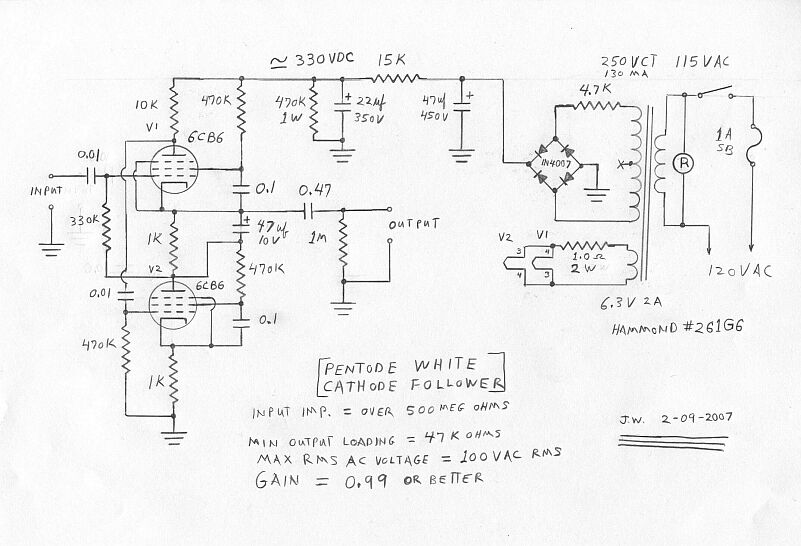 ≈ 330VDC
15K
250VCT 115VAC
130 MA
4.7K
10K
470K
470K
1W
22µf
350V
47µf
450V
V1
6CB6
1N4007
X
R
1A
SB
0.01
INPUT
0.1
0.47
330K
47µf
10V
1M
OUTPUT
1K
V2
6CB6
470K
V2
V1
3
4
4
3
1.0Ω
2W
120VAC
0.01
0.1
6.3V 2A
HAMMOND #261G6
470K
1K
PENTODE WHITE
CATHODE FOLLOWER
INPUT IMP. = OVER 500 MEG OHMS
J.W. 2-09-2007
MIN OUTPUT LOADING = 47K OHMS
MAX RMS AC VOLTAGE = 100VAC RMS
GAIN = 0.99 OR BETTER